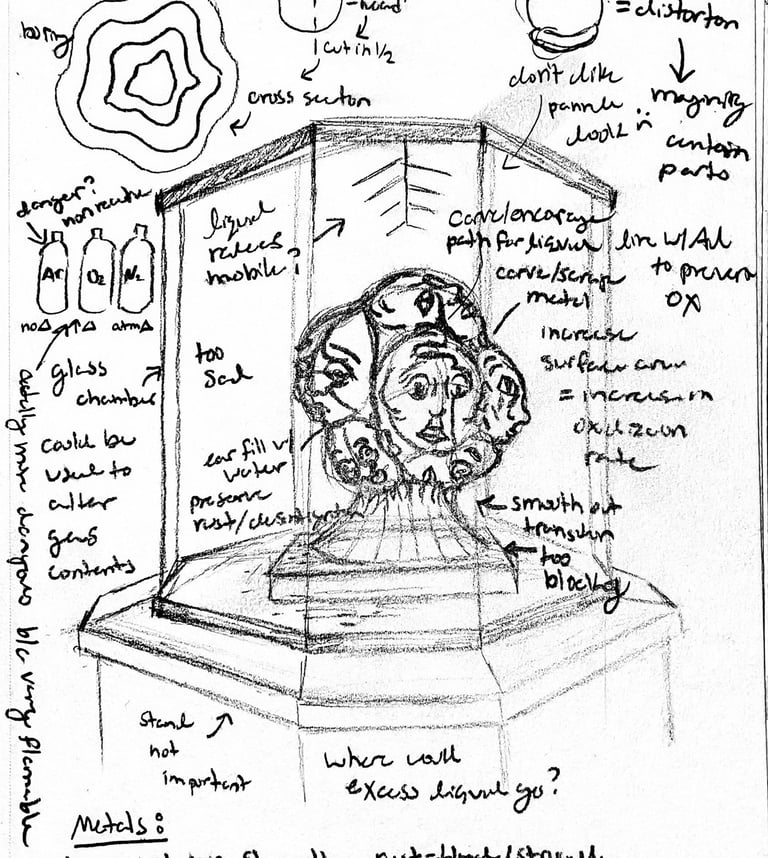 boring
head
cut in 1/2
cross section
= distorton
don't like
pannle
look
majority
contain
parts
danger?
nonreactive
Ar
O2
N2
no Δ
↑Δ
atm Δ
liquid
release
mobile?
carve/encourage
path for liquid
line w/ Au
to prevent
ox
carve/scrape
metal
increase
surface area
= increase in
oxidization
rate
glass
chamber
could be
used to
alter
gas
contents
too
sad
ear fill w/
water
preserve
rust/
smooth out
transition
too
blocky
actually more dangerous b/c very flammable
stand
not
important
where will
excess liquid go?
Metals: